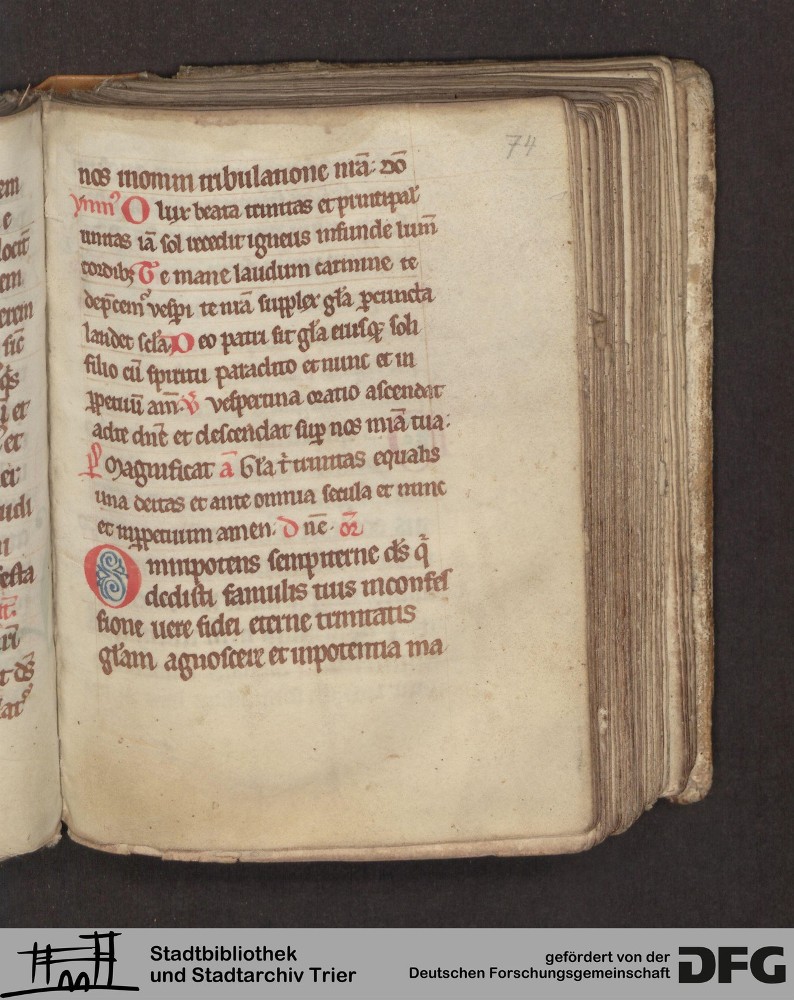 em
e
locūt
em
erem
sic
q̄s
ū et
et
et
udi
festa
74
nos inomni tribulatione nrā: Dō
ymn⁹ O lux beata trinitas et principal̄
unitas iā sol recedit igneus infunde lum̄
cordibȝ Te mane laudum carmine te
dep̄cem⁹ vesp̄i te nrā supplex gl̄a p̄cuncta
laudet scl̄a Deo patri sit gl̄a eiusqȝ soli
filio cū spiritu paraclito et nunc et in
ꝑpetuū am̄. v̄ vespertina oratio ascendat
adte dn̄e et descendat sup̄ nos mīa tua:
P̄ Magnificat ā Gl̄a t̄ trinitas equalis
una deitas et ante omnia secula et nunc
et inꝑpetuum amen: D nē. or̄
Omnipotens sempiterne ds̄ q̄
dedisti famulis tuis inconfes
sione uere fidei eterne trinitatis
gl̄am agnoscere et inpotentia ma
Stadtbibliothek
und Stadtarchiv Trier
gefördert von der
Deutschen Forschungsgemeinschaft
DFG